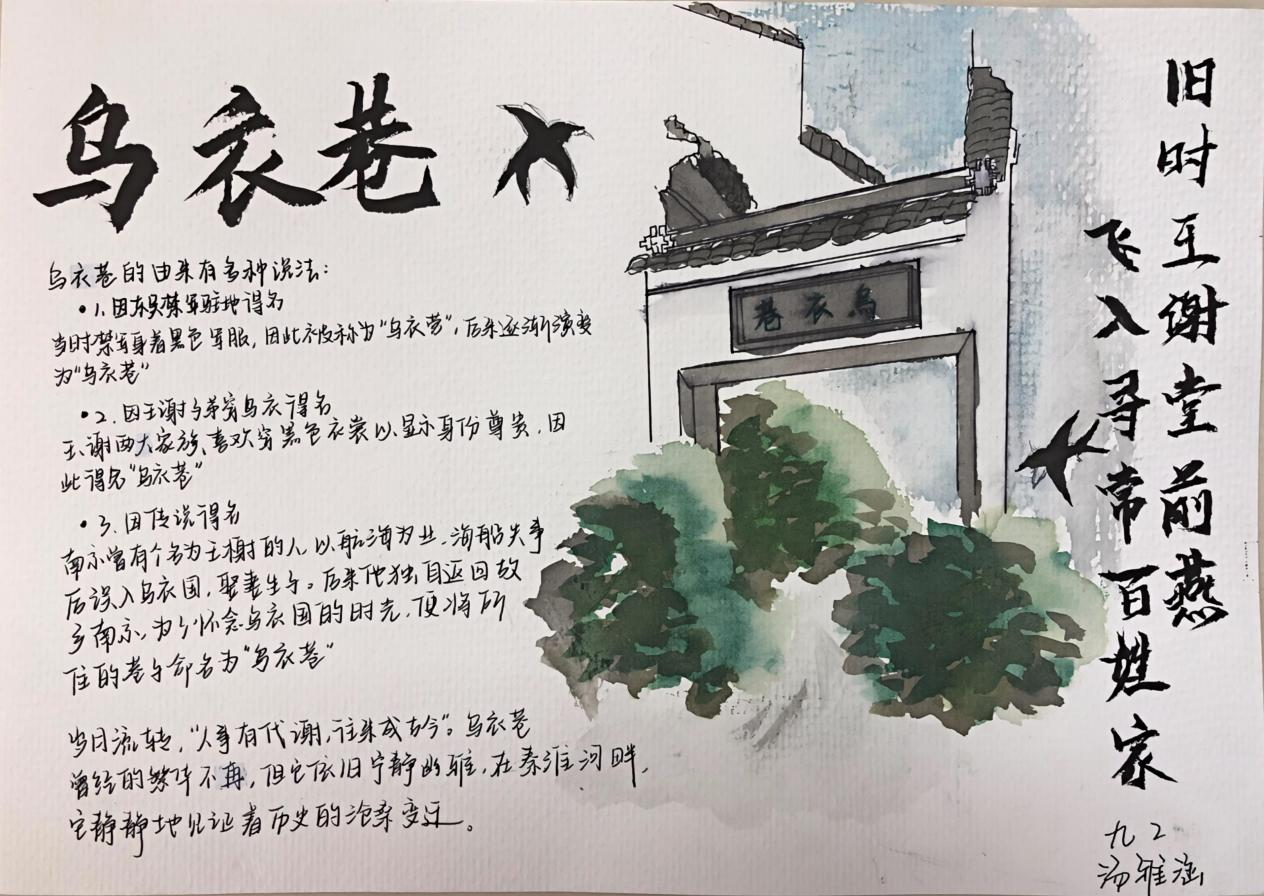 乌衣巷
乌衣巷的由来有多种说法：
•1.因东吴禁军驻地得名
当时禁军身着黑色军服，因此被称为“乌衣营”，后来逐渐演变
为“乌衣巷”
•2.因王谢子弟穿乌衣得名
王、谢两大家族，喜欢穿黑色衣裳以显示身份尊贵，因
此得名“乌衣巷”
•3.因传说得名
南京曾有个名为王榭的人，以航海为业，海船失事
后误入乌衣国，娶妻生子。后来他独自返回故
乡南京，为了怀念乌衣国的时光，便将所
住的巷子命名为“乌衣巷”
岁月流转，“人事有代谢，往来成古今”。乌衣巷
曾经的繁华不再，但它依旧宁静幽雅，在秦淮河畔，
它静静地见证着历史的沧桑变迁。
乌衣巷
旧时王谢堂前燕
飞入寻常百姓家
九2
汤雅涵